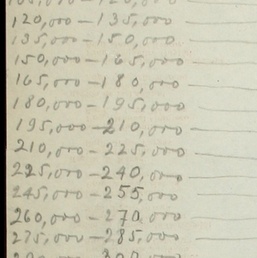 105,000 – 120,000
120,000 – 135,000
135,000 – 150,000
150,000 – 165,000
165,000 – 180,000
180,000 – 195,000
195,000 – 210,000
210,000 – 225,000
225,000 – 240,000
245,000 – 255,000
260,000 – 270,000
275,000 – 285,000